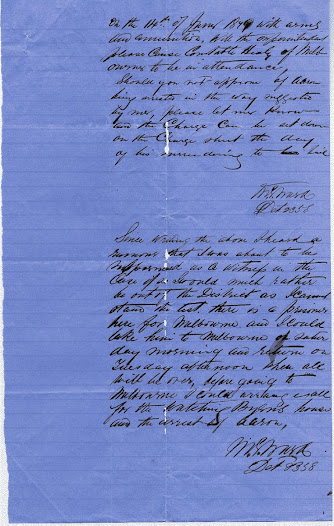 On the 14th of June 1879 with arms
and ammunition, will the
please Cause Constable of Milk
to be in attendance
Should you not approve of
in the way suggested
by me, please let me know
and the Charge Can be set down
on the Charge sheet the day
of his surrendering to bail
M E Ward
Det 2358
Since writing the above I heard a
rumour that I was about to be
subpoenaed as a witness in the
Case of a would much rather
be out of the District as I cannot
stand the test, there is a prisoner
here for Melbourne and I could
take him to Melbourne on Satur
day morning and return on
Tuesday afternoon when all
will be over, before going to
Melbourne I could arrange all
for the Watching Byrnes house
and the arrest of Aaron,
M E Ward
Det 2358